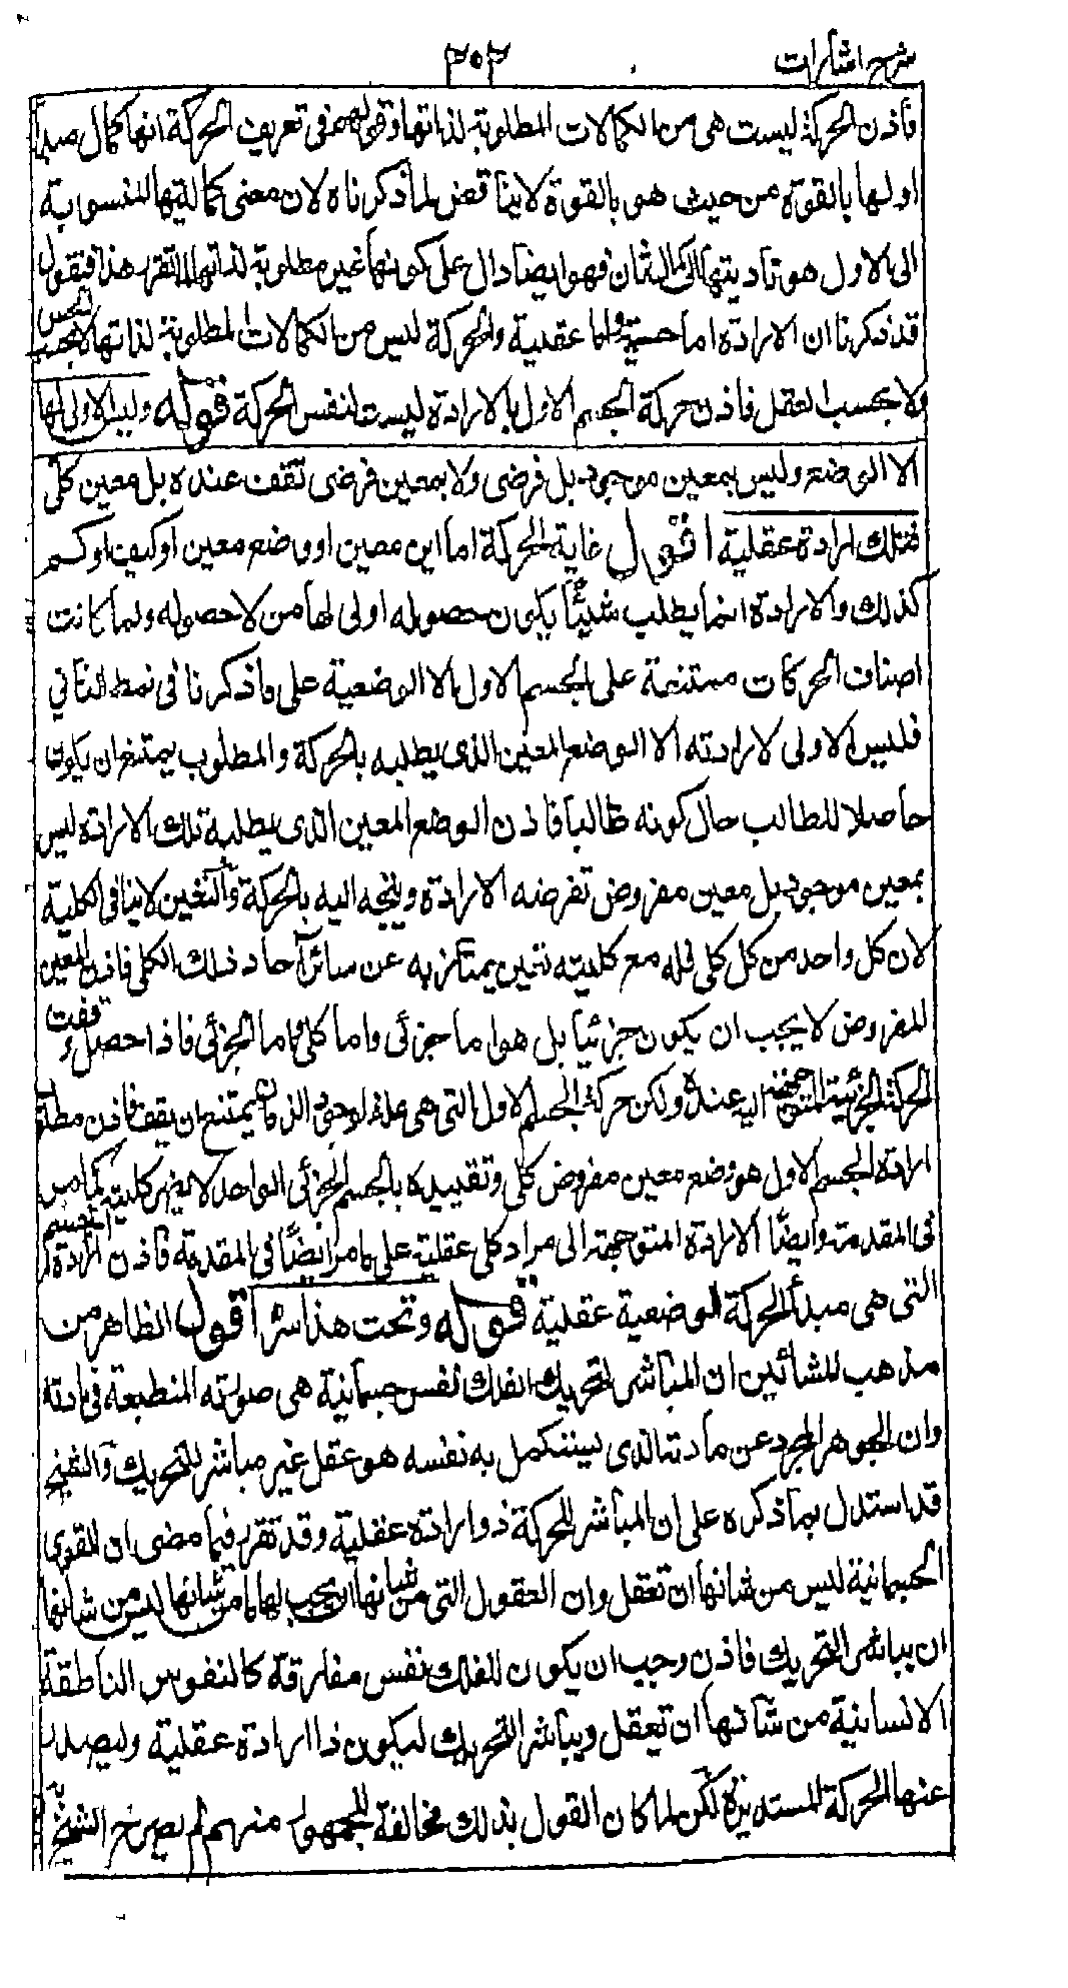 شرح اشارات
٣٠٢
فاذن الحركة ليست هى من الكمالات المطلوبة لذاتها وقولهم فى تعريف الحركة انها كمال
اول لها بالقوة من حيث هو بالقوة لا يناقض لما ذكرناه لان معنى كماليتها المنسوبة
الى الاول هو تاديتها الى الثانى فهو ايضا دال على كونها غير مطلوبة لذاتها اذا تقرر هذا فنقول
قد ذكرنا ان الارادة اما حسية واما عقلية والحركة ليس من الكمالات المطلوبة لذاتها لا بحسب الحس
ولا بحسب العقل فاذن حركة الجسم الاول بالارادة ليست لنفس الحركة قوله وليس الاولى لها
الا الوضع وليس بمعين موجود بل فرضى ولا بمعين فرضى تقف عنده بل معين كلى
فتلك ارادة عقلية اقول غاية الحركة اما اين معين او وضع معين او كيف او كم
كذلك والارادة انما يطلب شيئا يكون حصوله اولى لها من لا حصوله ولما كانت
اصناف الحركات ممتنعة على الجسم الاول الا الوضعية على ما ذكرنا فى نمط الثانى
فليس الاولى لارادته الا الوضع المعين الذى يطلبه بالحركة والمطلوب يمتنع ان يكون
حاصلا للطالب حال كونه طالبا فاذن الوضع المعين الذى يطلبه تلك الارادة ليس
بمعين موجود بل معين مفروض تفرضه الارادة ويتجه اليه بالحركة والتعين لا ينافى الكلية
لان كل واحد من كل كلى فله مع كليته تعين يمتاز به عن سائر آحاد ذلك الكلى فاذن المعين
المفروض لا يجب ان يكون جزئيا بل هو اما جزئى واما كلى واما الجزئى فاذا حصل وقفت
الحركة الجزئية المتوجهة اليه عنده ولكن حركة الجسم الاول التى هى علة لوجود الزمان يمتنع ان يقف فاذن مطلوب
ارادة الجسم الاول هو وضع معين مفروض كلى وتقييده بالجسم الجزئى الواحد لا يضر كليته كما مر
فى المقدمة وايضا الارادة المتوجهة الى مراد كلى عقلية على ما مر ايضا فى المقدمة فاذن ارادة الجسم
التى هى مبدأ الحركة الوضعية عقلية قوله وتحت هذا سر اقول الظاهر من
مذهب المشائين ان المباشر لتحريك الفلك نفس جسمانية هى صورته المنطبعة فى مادته
وان الجوهر المجرد عن مادته الذى يستكمل به نفسه هو عقل غير مباشر للتحريك والشيخ
قد استدل بما ذكره على ان المباشر للحركة ذو ارادة عقلية وقد تقرر فيما مضى ان القوى
الجسمانية ليس من شانها ان تعقل وان العقول التى من شانها ان يجب لها ما من شانها ليس من شانها
ان يباشر التحريك فاذن وجب ان يكون للفلك نفس مفارقة كالنفوس الناطقة
الانسانية من شانها ان تعقل ويباشر التحريك ليكون ذا ارادة عقلية وليصدر
عنها الحركة المستديرة لكن لما كان القول بذلك مخالفة للجمهور منهم لم يصرح الشيخ به